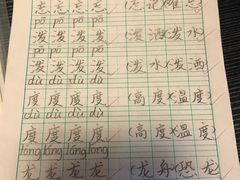 忘忘忘忘 (忘记)(难忘)
pō pō pō pō
泼泼泼泼 (泼洒)(泼水)
pō pō pō pō
泼泼泼泼 (泼水)(泼洒)
dù dù dù dù
度度度度 (高度)(温度)
dù dù dù dù
度度度度 (高度)(温度)
lóng lóng lóng lóng
龙龙龙龙 (龙舟)(恐龙